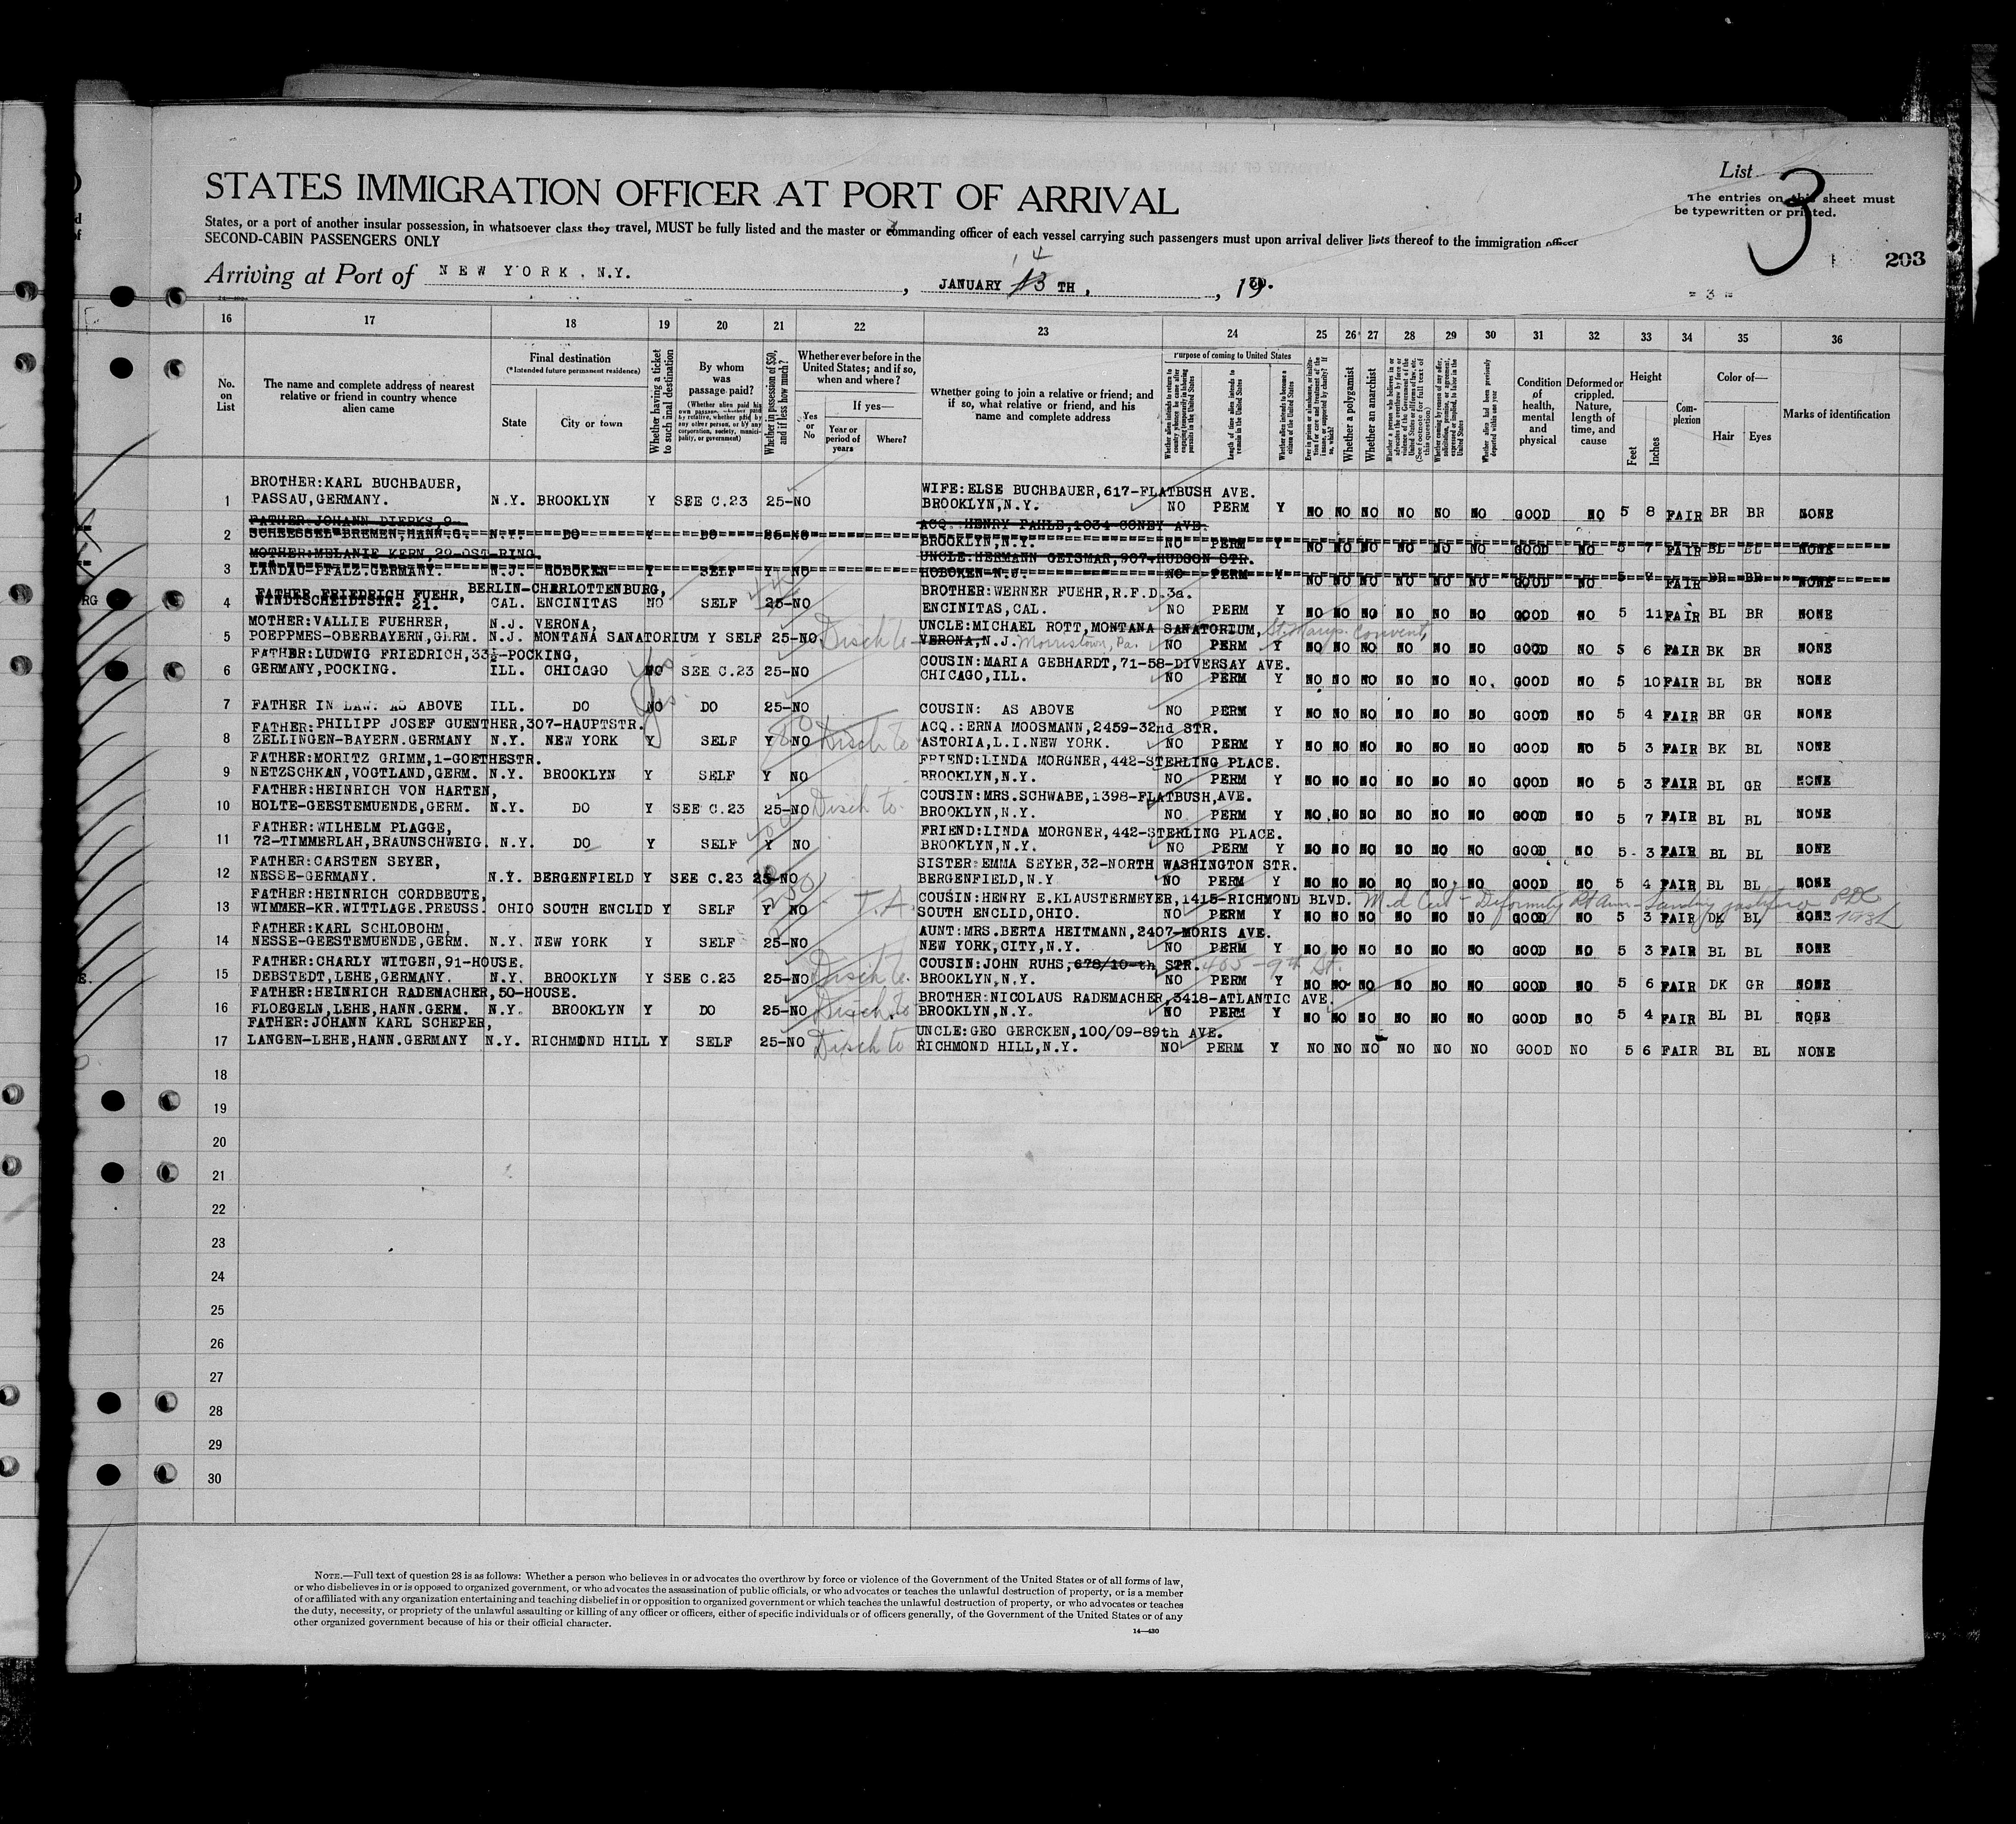 List 3
STATES IMMIGRATION OFFICER AT PORT OF ARRIVAL
The entries on this sheet must
be typewritten or printed.
States, or a port of another insular possession, in whatsoever class they travel, MUST be fully listed and the master or commanding officer of each vessel carrying such passengers must upon arrival deliver lists thereof to the immigration officer
SECOND-CABIN PASSENGERS ONLY
203
Arriving at Port of NEW YORK. N.Y. , JANUARY 13 TH, , 19
14
= 3 =
16 17 18 19 20 21 22 23 24 25 26 27 28 29 30 31 32 33 34 35 36
No. on List
The name and complete address of nearest relative or friend in country whence alien came
Final destination
(*Intended future permanent residence)
State
City or town
Whether having a ticket to such final destination
By whom was passage paid?
(Whether alien paid his own passage, whether paid by relative, whether paid by any other person, or by any corporation, society, municipality, or government)
Whether in possession of $50, and if less how much?
Whether ever before in the United States; and if so, when and where?
Yes or No
If yes—
Year or period of years
Where?
Whether going to join a relative or friend; and if so, what relative or friend, and his name and complete address
Purpose of coming to United States
Whether alien intends to return to country whence he came after engaging temporarily in laboring pursuits in the United States
Length of time alien intends to remain in the United States
Whether alien intends to become a citizen of the United States
Ever in prison or almshouse, or institution for care and treatment of the insane, or supported by charity? If so, which?
Whether a polygamist
Whether an anarchist
Whether a person who believes in or advocates the overthrow by force or violence of the Government of the United States or all forms of law, etc. (See footnote for full text of this question)
Whether coming by reason of any offer, solicitation, promise, or agreement, expressed or implied, to labor in the United States
Whether alien had been previously deported within one year
Condition of health, mental and physical
Deformed or crippled. Nature, length of time, and cause
Height
Feet
Inches
Complexion
Color of—
Hair
Eyes
Marks of identification
BROTHER:KARL BUCHBAUER, WIFE:ELSE BUCHBAUER,617-FLATBUSH AVE.
1 PASSAU,GERMANY. N.Y. BROOKLYN Y SEE C.23 25-NO BROOKLYN,N.Y. NO PERM Y NO NO NO NO NO NO GOOD NO 5 8 FAIR BR BR NONE
FATHER:JOHANN DIERKS,9- ACQ. HENRY PAHLE,1034-CONEY AVE.
2 SCHEESSEL-BREMEN,HANN.G. N.Y. DO Y DO 25-NO BROOKLYN,N.Y. NO PERM Y NO NO NO NO NO NO GOOD NO 5 7 FAIR BL BL NONE
MOTHER:MELANIE KERN,29-OST-RING. UNCLE:HERMANN GEISMAR,907-HUDSON STR.
3 LANDAU-PFALZ.GERMANY. N.J. HOBOKEN Y SELF Y NO HOBOKEN-N.J. NO PERM Y NO NO NO NO NO NO GOOD NO 5 FAIR BR BR NONE
FATHER FRIEDRICH FUEHR, BERLIN-CHARLOTTENBURG, BROTHER:WERNER FUEHR,R.F.D.3a.
4 WINDTSCHEIDTSTR. 21. CAL. ENCINITAS NO SELF 25-NO ENCINITAS,CAL. NO PERM Y NO NO NO NO NO NO GOOD NO 5 11 FAIR BL BR NONE
MOTHER:VALLIE FUEHRER, N.J. VERONA, UNCLE:MICHAEL ROTT,MONTANA SANATORIUM, St. Marys Convent,
5 POEPPMES-OBERBAYERN,GERM. N.J. MONTANA SANATORIUM Y SELF 25-NO. Disch to VERONA,N.J. Morristown, Pa. NO PERM Y NO NO NO NO NO NO GOOD NO 5 6 FAIR BK BR NONE
FATHER:LUDWIG FRIEDRICH,33½-POCKING, COUSIN:MARIA GEBHARDT,71-58-DIVERSAY AVE.
6 GERMANY,POCKING. ILL. CHICAGO NO Yes SEE C.23 25-NO CHICAGO,ILL. NO PERM Y NO NO NO NO NO NO. GOOD NO 5 10 FAIR BL BR NONE
7 FATHER IN LAW: AS ABOVE ILL. DO NO Yes DO 25-NO COUSIN: AS ABOVE NO PERM Y NO NO NO NO NO NO GOOD NO 5 4 FAIR BR GR NONE
FATHER:PHILIPP JOSEF GUENTHER,307-HAUPTSTR. ACQ.:ERNA MOOSMANN,2459-32nd STR.
8 ZELLINGEN-BAYERN.GERMANY N.Y. NEW YORK Y SELF Y NO Disch to ASTORIA,L.I.NEW YORK. NO PERM Y NO NO NO NO NO NO GOOD NO 5 3 FAIR BK BL NONE
FATHER:MORITZ GRIMM,1-GOETHESTR. FRIEND:LINDA MORGNER,442-STERLING PLACE.
9 NETZSCHKAN,VOGTLAND,GERM. N.Y. BROOKLYN Y SELF Y NO BROOKLYN,N.Y. NO PERM Y NO NO NO NO NO NO GOOD NO 5 3 FAIR BL GR NONE
FATHER:HEINRICH VON HARTEN, COUSIN:MRS.SCHWABE,1398-FLATBUSH,AVE.
10 HOLTE-GEESTEMUENDE,GERM. N.Y. DO Y SEE C.23 25-NO Disch to BROOKLYN,N.Y. NO PERM Y NO NO NO NO NO NO GOOD NO 5 7 FAIR BL BL NONE
FATHER:WILHELM PLAGGE, FRIEND:LINDA MORGNER,442-STERLING PLACE.
11 72-TIMMERLAH,BRAUNSCHWEIG. N.Y. DO Y SELF Y NO BROOKLYN,N.Y. NO PERM Y NO NO NO NO NO NO GOOD NO 5 3 FAIR BL BL NONE
FATHER:CARSTEN SEYER, SISTER:EMMA SEYER,32-NORTH WASHINGTON STR.
12 NESSE-GERMANY. N.Y. BERGENFIELD Y SEE C.23 25-NO BERGENFIELD,N.Y NO PERM Y NO NO NO NO NO NO GOOD NO 5 4 FAIR BL BL NONE
FATHER:HEINRICH CORDBEUTE, COUSIN:HENRY E.KLAUSTERMEYER,1415-RICHMOND BLVD. Med Cert - Deformity Rt Arm -
13 WIMMER-KR.WITTLAGE.PREUSS. OHIO SOUTH ENCLID Y SELF Y NO SOUTH ENCLID,OHIO. NO PERM Y NO NO NO NO NO NO GOOD NO 5 3 FAIR DK BL NONE
FATHER:KARL SCHLOBOHM, AUNT:MRS.BERTA HEITMANN,2407-MORIS AVE.
14 NESSE-GEESTEMUENDE,GERM. N.Y. NEW YORK Y SELF 25-NO NEW YORK,CITY,N.Y. NO PERM Y NO NO NO NO NO NO GOOD NO 5 3 FAIR BL BL NONE
FATHER:CHARLY WITGEN,91-HOUSE. COUSIN:JOHN RUHS,678/10-th STR. 405-9th St.
15 DEBSTEDT,LEHE,GERMANY. N.Y. BROOKLYN Y SEE C.23 25-NO Disch to BROOKLYN,N.Y. NO PERM Y NO NO NO NO NO NO GOOD NO 5 6 FAIR DK GR NONE
FATHER:HEINRICH RADEMACHER,50-HOUSE. BROTHER:NICOLAUS RADEMACHER,3418-ATLANTIC AVE.
16 FLOEGELN,LEHE,HANN.GERM. N.Y. BROOKLYN Y DO 25-NO Disch to BROOKLYN,N.Y. NO PERM Y NO NO NO NO NO NO GOOD NO 5 4 FAIR BL BL NONE
FATHER:JOHANN KARL SCHEPER, UNCLE:GEO GERCKEN,100/09-89th AVE.
17 LANGEN-LEHE,HANN.GERMANY N.Y. RICHMOND HILL Y SELF 25-NO Disch to RICHMOND HILL,N.Y. NO PERM Y NO NO NO NO NO NO GOOD NO 5 6 FAIR BL BL NONE
18
19
20
21
22
23
24
25
26
27
28
29
30
NOTE.—Full text of question 28 is as follows: Whether a person who believes in or advocates the overthrow by force or violence of the Government of the United States or of all forms of law,
or who disbelieves in or is opposed to organized government, or who advocates the assassination of public officials, or who advocates or teaches the unlawful destruction of property, or is a member
of or affiliated with any organization entertaining and teaching disbelief in or opposition to organized government or which teaches the unlawful destruction of property, or who advocates or teaches
the duty, necessity, or propriety of the unlawful assaulting or killing of any officer or officers, either of specific individuals or of officers generally, of the Government of the United States or of any
other organized government because of his or their official character.
14—430